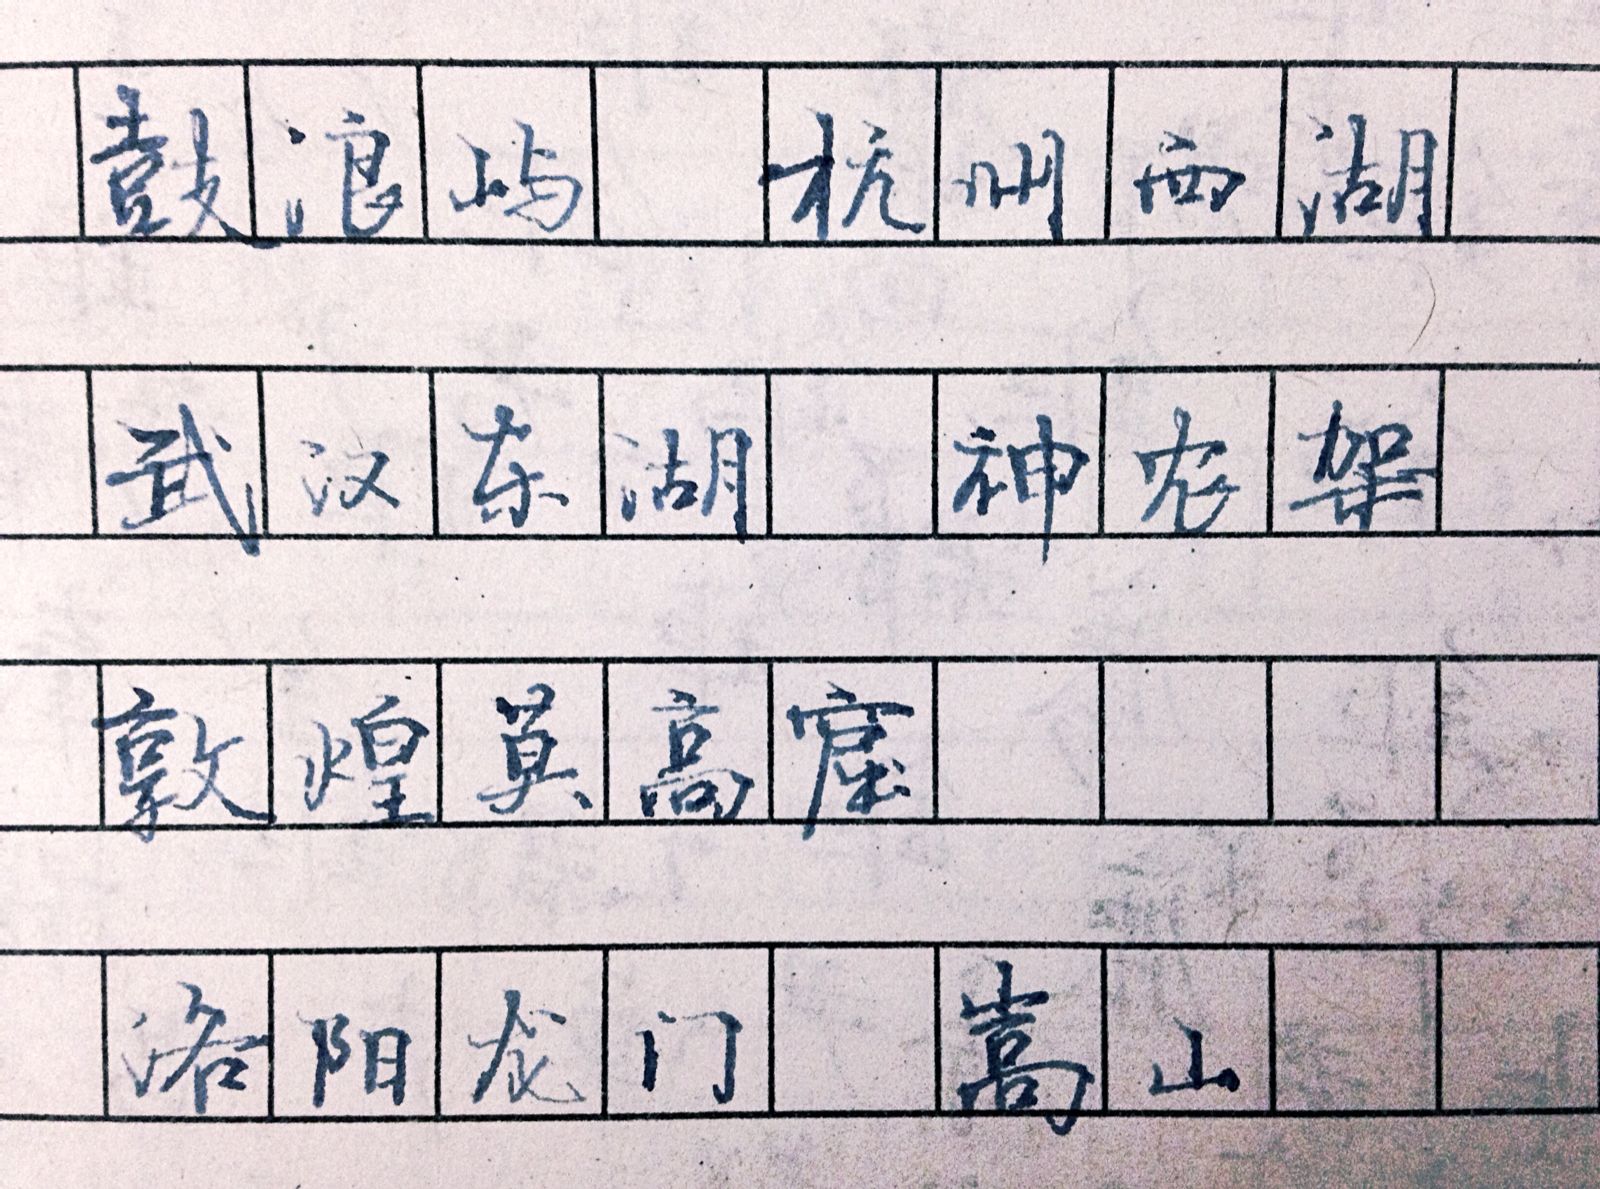 鼓浪屿 杭州西湖
武汉东湖 神农架
敦煌莫高窟
洛阳龙门 嵩山